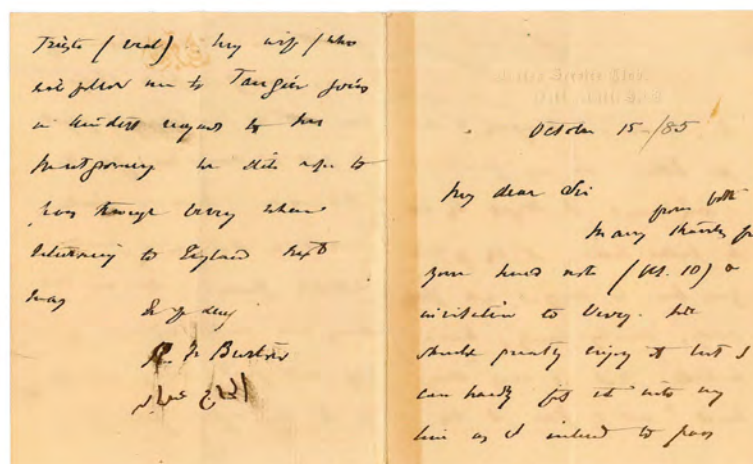 my wife (who
will follow me to Tangier joins
in kindest regards to Mrs
Montgomery we still hope to
pass through Vevey when
returning to England next
May
R F Burton
الحاج عبدالله
United Service Club,
Pall Mall. S.W.
October 15 /85
My dear Sir
from both
Many thanks for
your kind note (Oct. 10) &
invitation to Vevey. We
should greatly enjoy it but I
can hardly fit it into my
time as I intend to pass